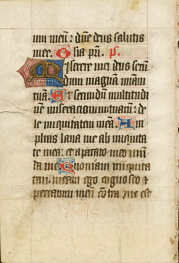 um meū: dn̄e deus salutis
mee. Gl̄ia pr̄i. ps.
Miserere mei deus secū
dum magnā miam
tuā. Et secundū multitudi
nē miseracionum tuarū: de
le iniquitatem meā. Am
plius laua me ab iniquita
te mea: et a peccato meo mū
da me. Quoniam iniquita
tem meam ego cognosco et
peccatum meū cōtra me est